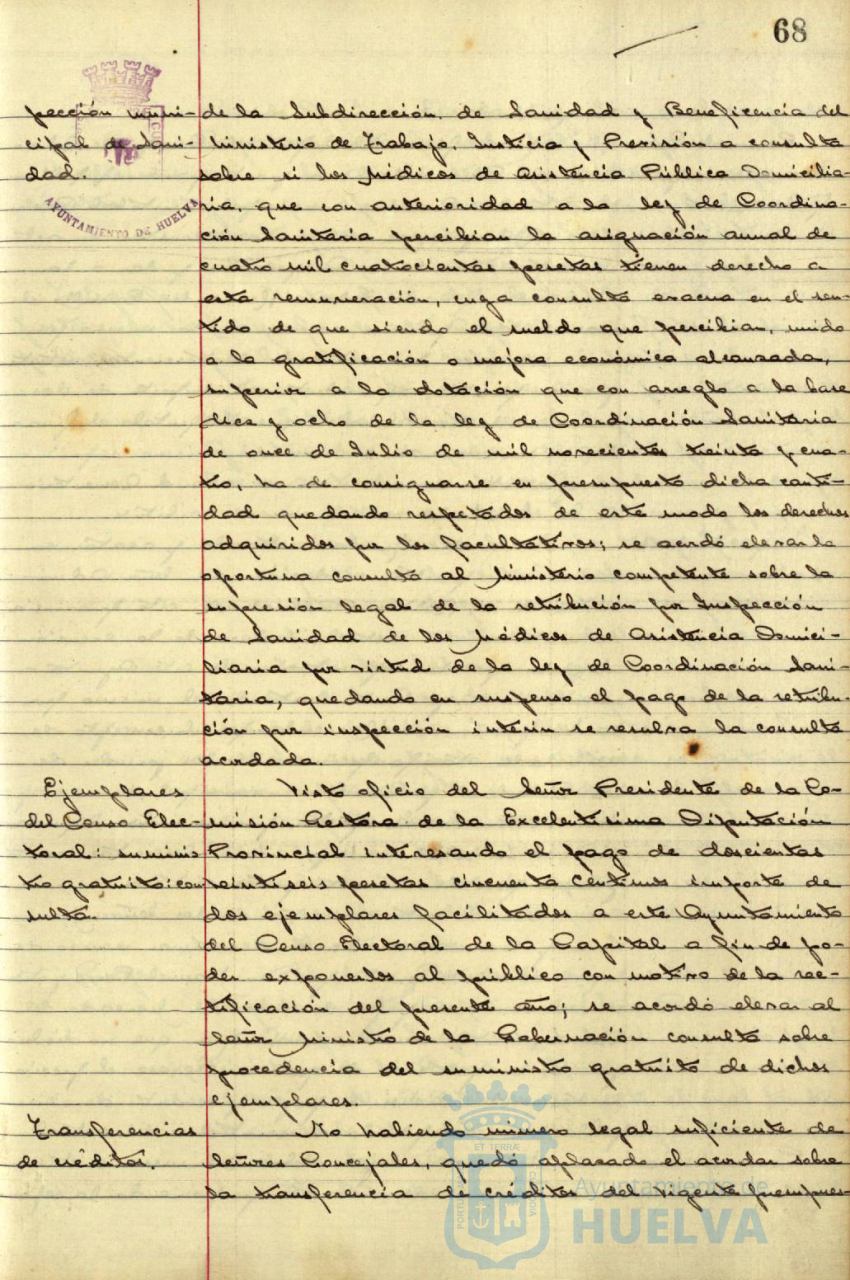 68
AYUNTAMIENTO DE HUELVA
pección muni-
cipal de Sani-
dad.
de la Subdirección de Sanidad y Beneficencia del
Ministerio de Trabajo, Justicia y Previsión a consulta
sobre si los Médicos de Asistencia Pública Domicilia-
ria, que con anterioridad a la ley de Coordina-
ción Sanitaria percibian la asignación anual de
cuatro mil cuatrocientas pesetas tienen derecho a
esta remuneración, cuya consulta evacua en el sen-
tido de que siendo el sueldo que percibian, unido
a la gratificación o mejora económica alcanzada,
superior a la dotación que con arreglo a la base
diez y ocho de la ley de Coordinación Sanitaria
de once de Julio de mil novecientos treinta y cua-
tro, ha de consignarse en presupuesto dicha canti-
dad quedando respetados de este modo los derechos
adquiridos por los facultativos; se acordó elevar la
oportuna consulta al Ministerio competente sobre la
supresión legal de la retribución por Inspección
de Sanidad de los Médicos de Asistencia Domici-
liaria por virtud de la ley de Coordinación Sani-
taria, quedando en suspenso el pago de la retribu-
ción por inspección interin se resuelva la consulta
acordada.
Ejemplares
del Censo Elec-
toral: suminis-
tro gratuito: con
sulta.
Visto oficio del Señor Presidente de la Co-
misión Gestora de la Excelentisima Diputación
Provincial interesando el pago de doscientas
veintiseis pesetas cincuenta centimos importe de
dos ejemplares facilitados a este Ayuntamiento
del Censo Electoral de la Capital a fin de po-
der exponerlos al público con motivo de la rec-
tificación del presente año; se acordó elevar al
Señor Ministro de la Gobernación consulta sobre
procedencia del suministro gratuito de dichos
ejemplares.
Transferencias
de créditos.
No habiendo número legal suficiente de
Señores Concejales, quedó aplazado el acordar sobre
la transferencia de créditos del vigente presupues-
Ayuntamiento de
HUELVA